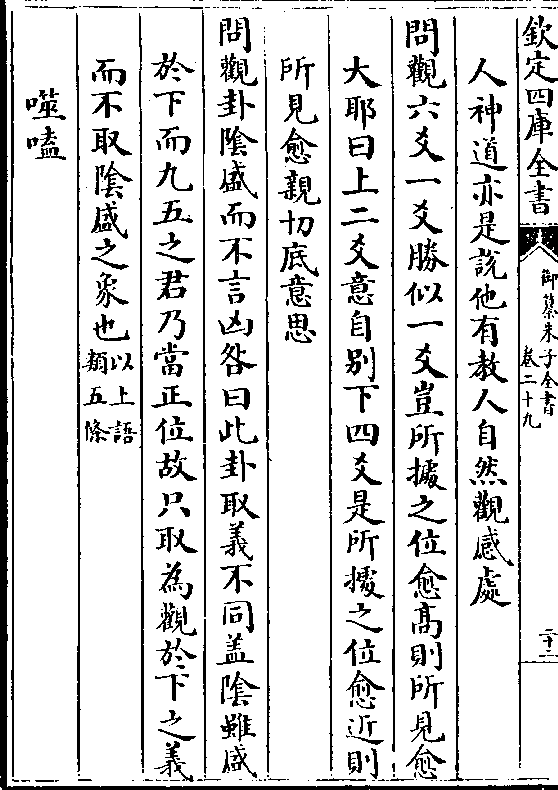 欽定四庫全書
御纂朱子全書
卷二十九
二十二
人神道亦是說他有教人自然觀感處
問觀六爻一爻勝似一爻豈所據之位愈髙則所見愈
大耶曰上二爻意自别下四爻是所據之位愈近則
所見愈親切底意思
問觀卦陰盛而不言凶咎曰此卦取義不同盖陰雖盛
於下而九五之君乃當正位故只取為觀於下之義
而不取陰盛之象也以上語
類五條
噬嗑